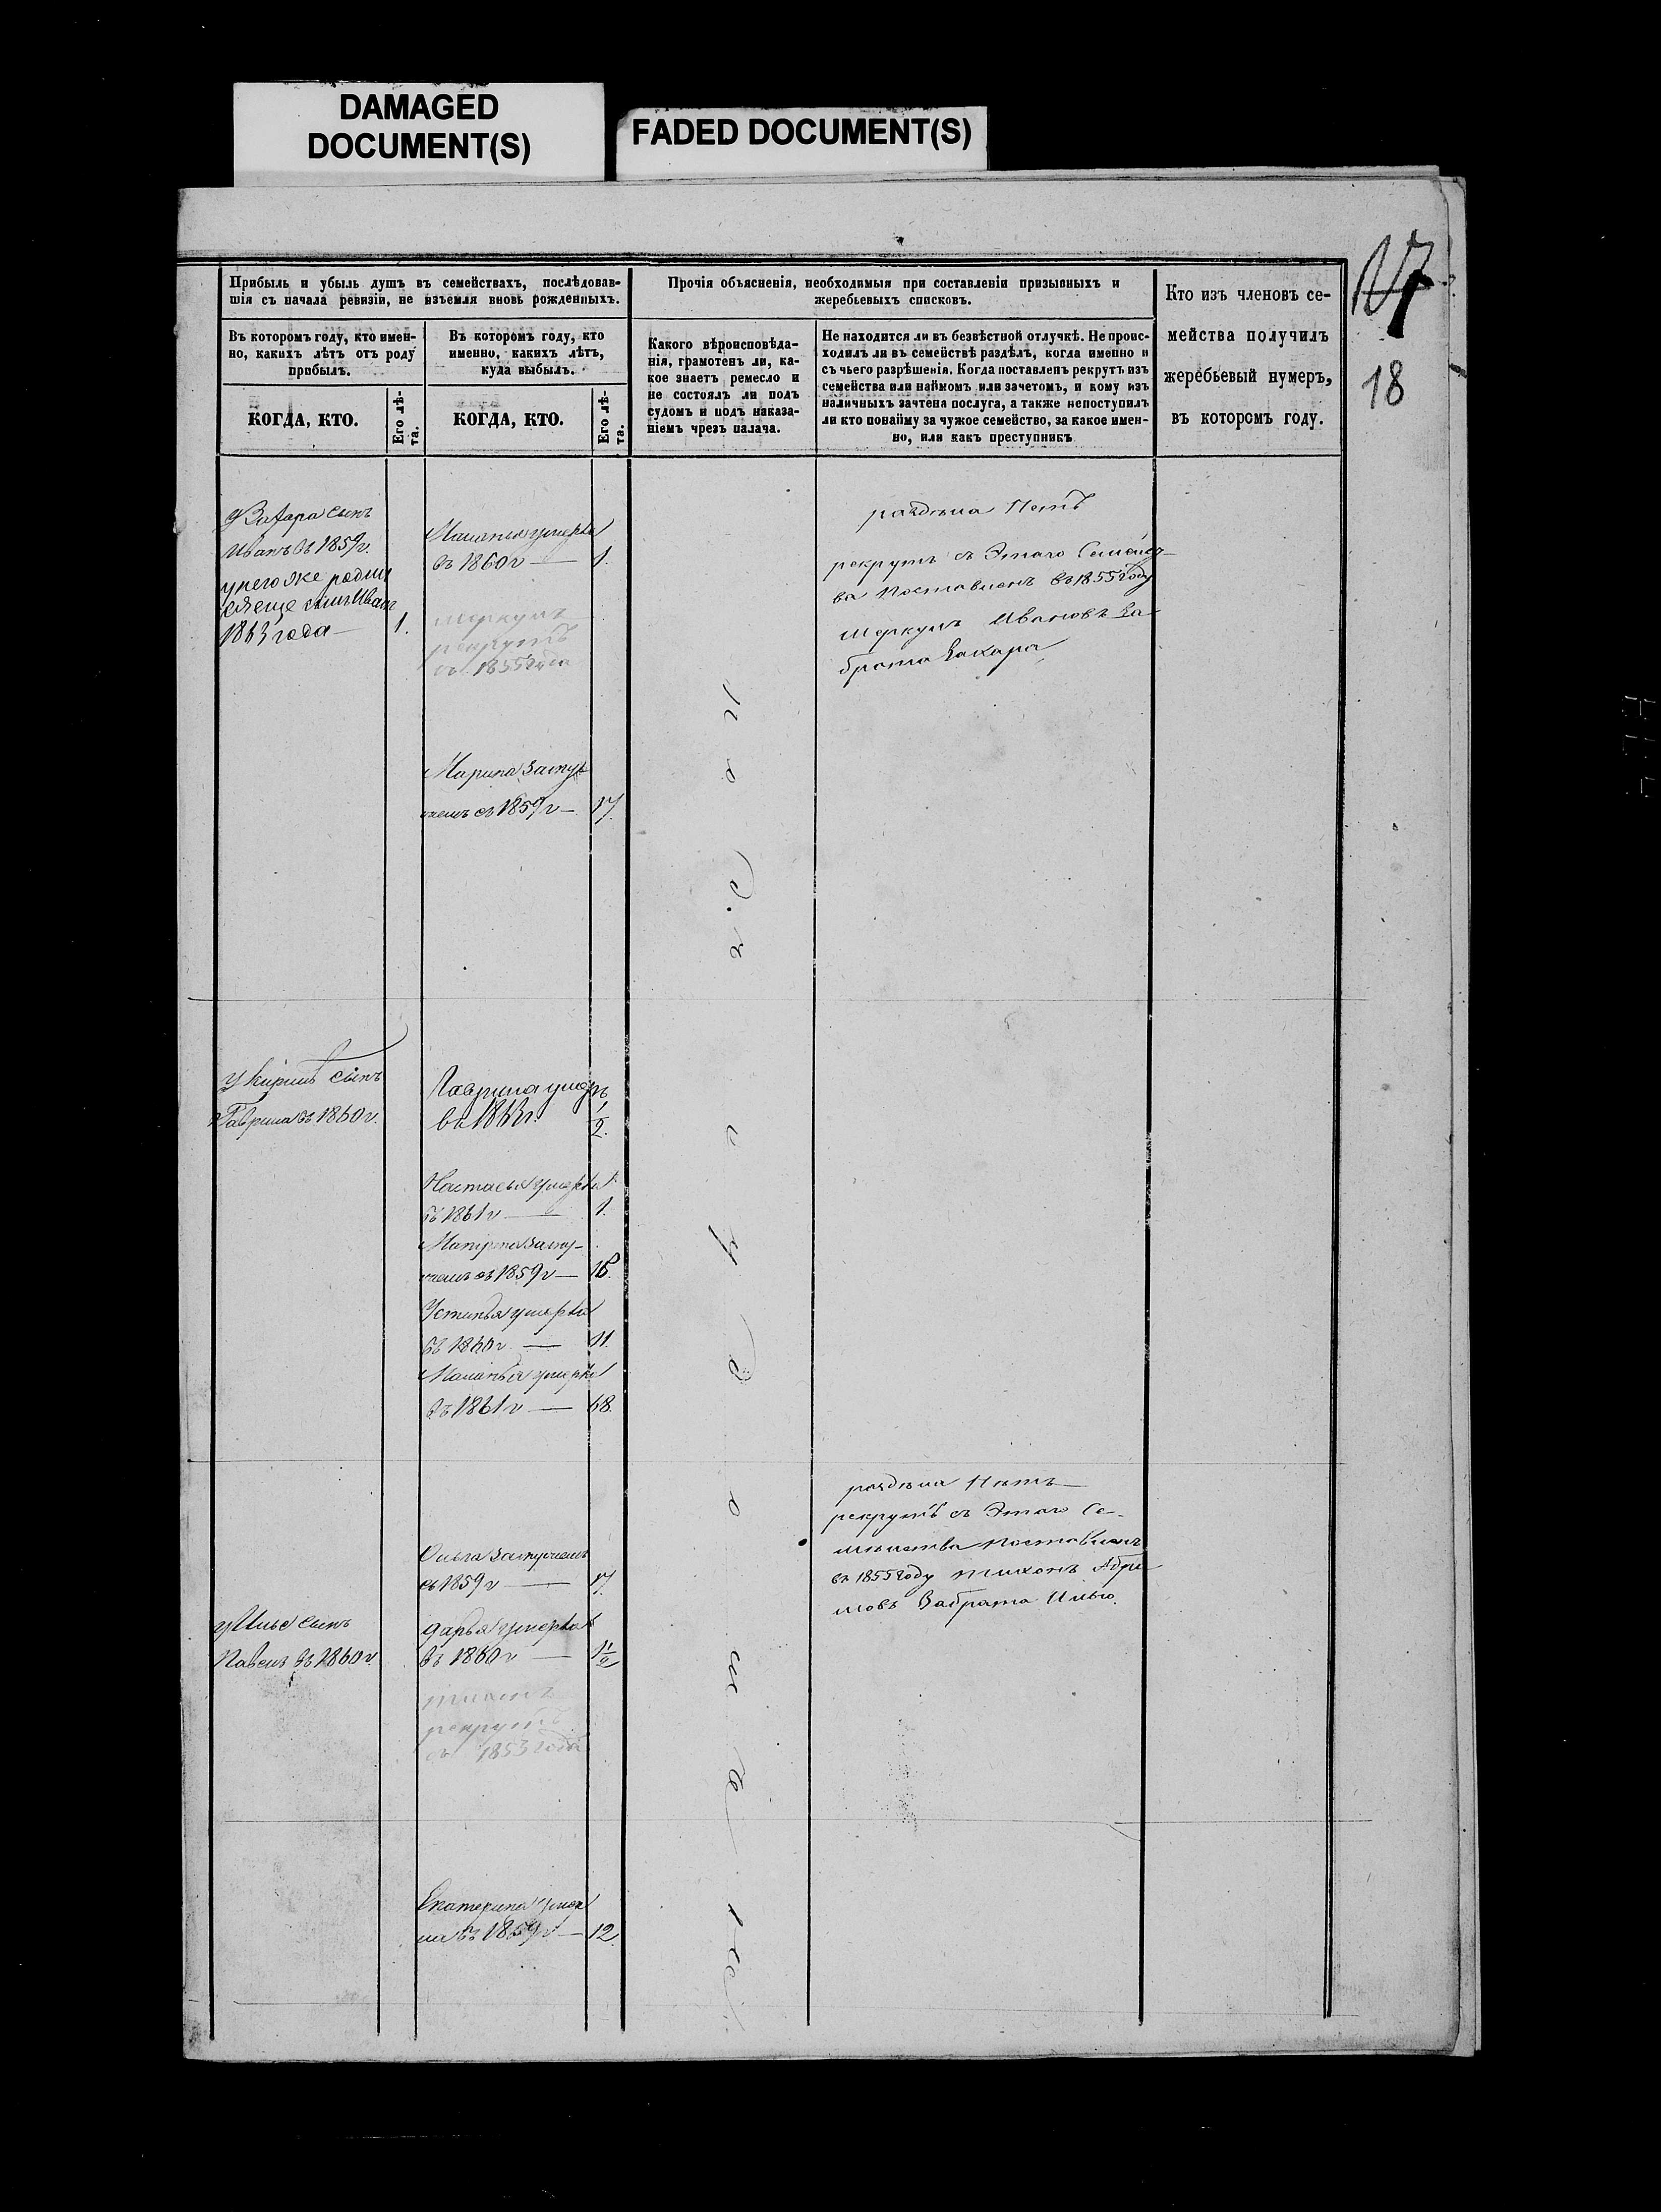 DAMAGED
DOCUMENT(S)
FADED DOCUMENT(S)
17
18
Прибыль и убыль душъ въ семействахъ, послѣдовав-
шія съ начала ревизіи, не изъемля вновь рожденныхъ.
Въ которомъ году, кто имен-
но, какихъ лѣтъ отъ роду
прибылъ.
КОГДА, КТО.
Его лѣ-
та.
Въ которомъ году, кто
именно, какихъ лѣтъ,
куда выбылъ.
КОГДА, КТО.
Его лѣ-
та.
Прочія объясненія, необходимыя при составленіи призывныхъ и
жеребьевыхъ списковъ.
Какого вѣроисповѣда-
нія, грамотенъ ли, ка-
кое знаетъ ремесло и
не состоялъ ли подъ
судомъ и подъ наказа-
ніемъ чрезъ палача.
Не находится ли въ безвѣстной отлучкѣ. Не проис-
ходилъ ли въ семействѣ раздѣлъ, когда именно и
съ чьего разрѣшенія. Когда поставленъ рекрутъ изъ
семейства или наймомъ или зачетомъ, и кому изъ
наличныхъ зачтена послуга, а также непоступилъ
ли кто понайму за чужое семейство, за какое имен-
но, или какъ преступникъ
Кто изъ членовъ се-
мейства получилъ
жеребьевый нумеръ,
въ которомъ году.
У Захара сынъ
Иванъ въ 1859 г.
у него же родил
ся еще сынъ Иванъ
1863 года — 1.
Маланья умерла
въ 1860 г — 1.
Меркулъ
рекрутъ
съ 1855 года
Марина замуж
жемъ съ 1859 г — 17.
раздѣла Нетъ
рекрутъ съ Этаго Семейст-
ва Поставленъ въ 1855 году
Меркулъ Ивановъ за
брата Захара
У Кирилы сынъ
Гаврила въ 1860 г.
Гаврила умеръ
въ 1863 г. 1/2.
Настасья умерла
въ 1861 г — 1.
Матрена заму-
жемъ съ 1859 г — 18.
Устинья умерла
въ 1860 г. — 11.
Маланья умерла
въ 1861 г — 68.
Ольга замужемъ
съ 1859 г — 17.
у Ильи сынъ
Павелъ въ 1860 г.
Дарья умерла
въ 1860 г — 1 1/2
рекрутъ
съ 1853 года
раздѣла Нетъ
рекрутъ съ Этаго Се-
мейства Поставленъ
въ 1855 году Тихонъ Абра
мовъ За брата Илью.
Екатерина умер
ла въ 1859 г — 12.